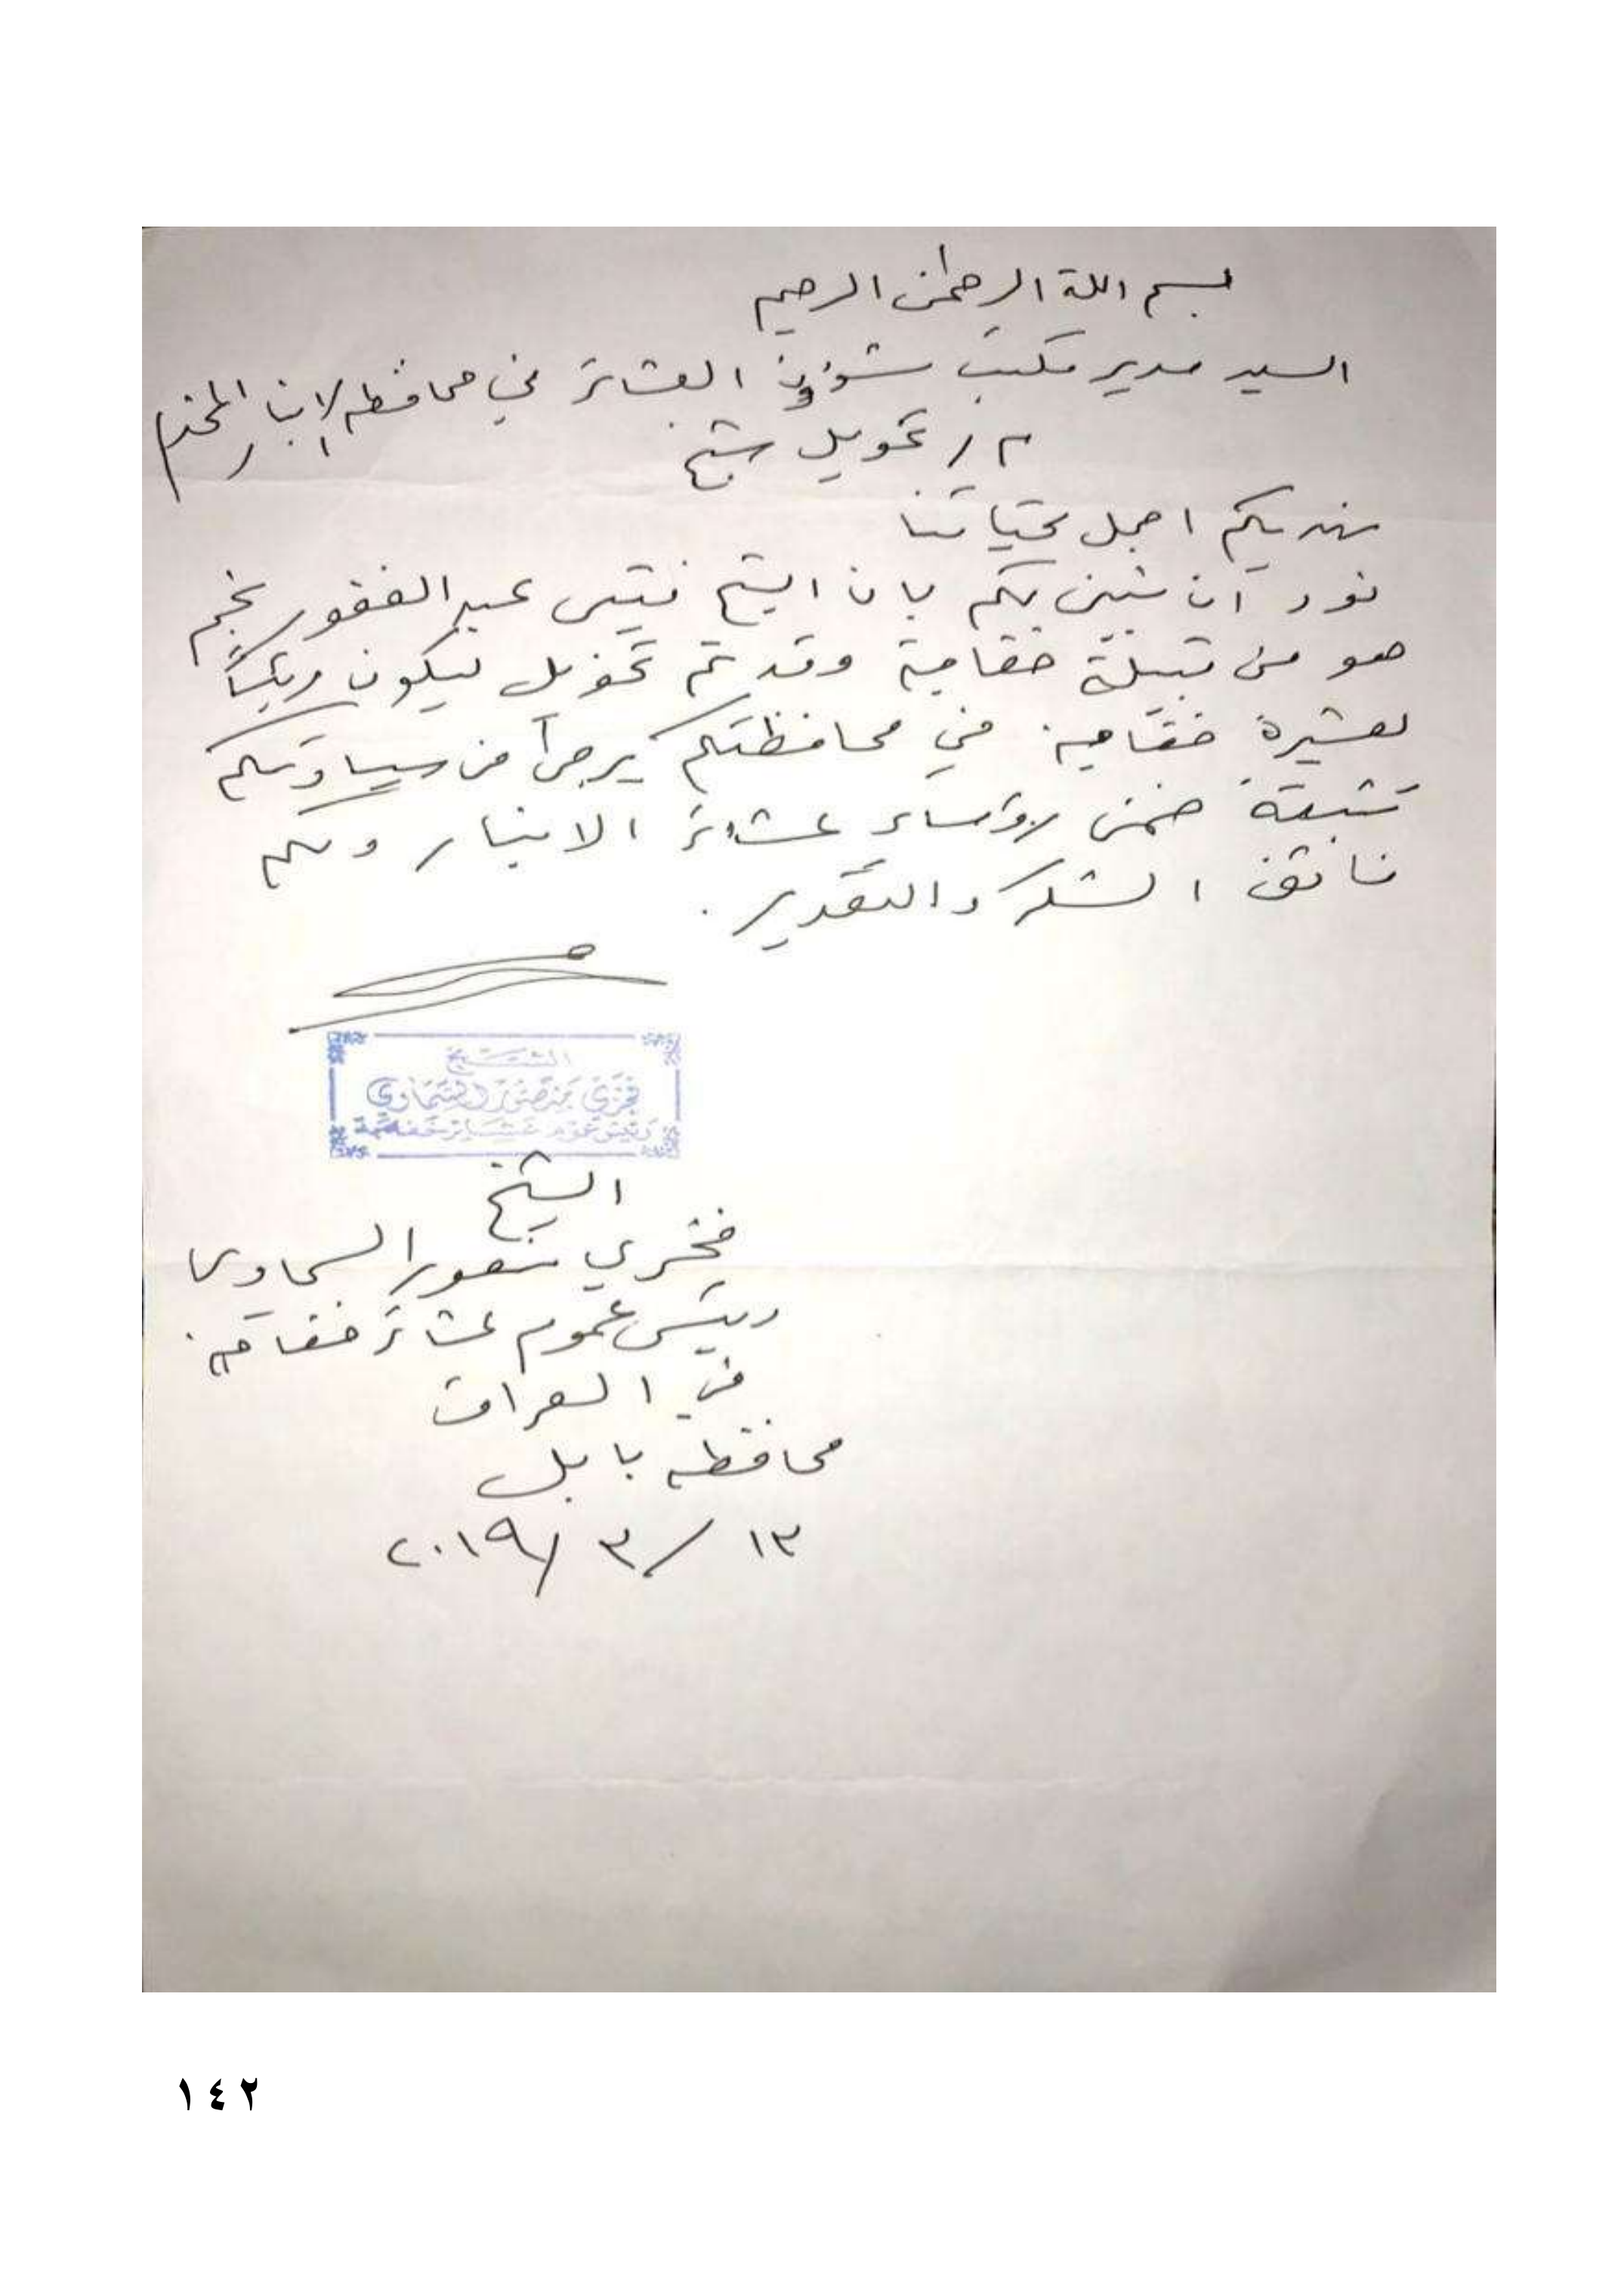 بسم اللة الرحمن الرحيم
السيد مدير مكتب شؤون العشائر في محافظه الانبار المحترم
م / تخويل شيخ
نهديكم اجمل تحياتنا
نود أن نبين لكم بان الشيخ قتيبه عبد الغفور نجم
هو من قبيلة خفاجة وقد تم تخويل ليكون رئيساً
لعشيرة خفاجه في محافظتكم يرجى من سيادتكم
تثبيتة ضمن رؤساء عشائر الانبار ولكم
فائق الشكر والتقدير .
الشيخ
فخري منصور السماوي
رئيس عموم عشائر خفاجة
الشيخ
فخري منصور السماوي
رئيس عموم عشائر خفاجه
في العراق
محافظه بابل
١٣ / ٣ / ٢٠١٩
١٤٢